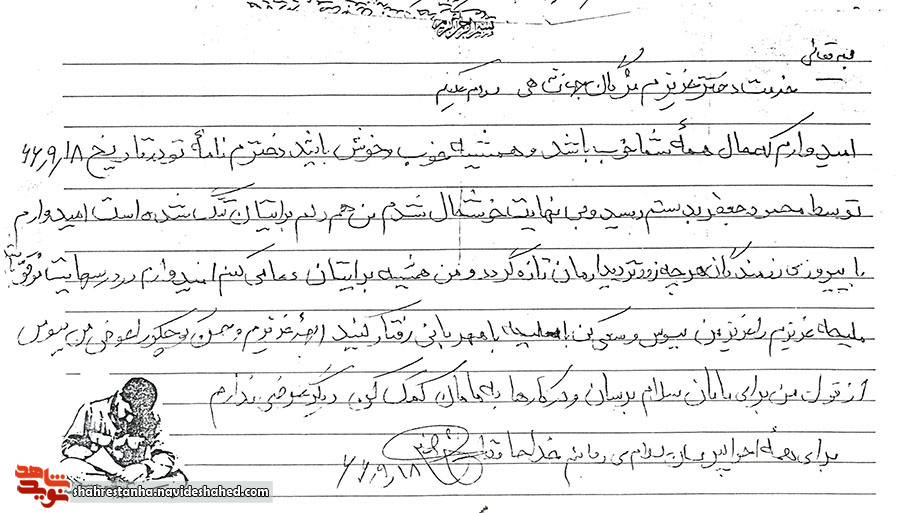 بسم الله الرحمن الرحیم
بسمه تعالی
خدمت دختر عزیزم مژگان سلام علیکم
امیدوارم که حال همهٔ شما خوب باشد و همیشه خوب و خوش باشید دخترم نامهٔ تو در تاریخ ۶۶٫۹٫۱۸
توسط محمود جعفری بدستم رسید و بی نهایت خوشحال شدم من هم دلم برایتان تنگ شده است امیدوارم
با پیروزی رزمندگان هر چه زودتر دیدارمان تازه گردد و من همیشه برایتان دعا می کنم امیدوارم در درسهایت موفق
ملیحه عزیزم را عزیز من ببوس و سعی کن با ملیحه با مهربانی رفتار کنید عزیزم و کوچکو را عوض من ببوس
از قول من برای مامان سلام برسان و در کارها به مامان کمک کن دیگر عرضی ندارم
برای همهٔ سلام می رسانم خداحافظ
۶۶٫۹٫۱۸
شاهد
نوید
shahrestanha.navideshahed.com